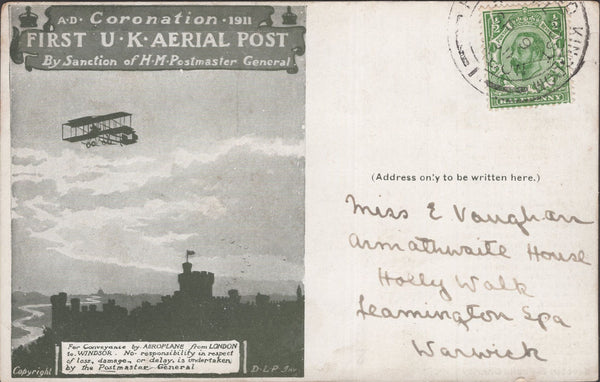 A·D· Coronation · 1911
FIRST U·K·AERIAL POST
By Sanction of H·M·Postmaster General
(Address only to be written here.)
Miss E Vaughan
Armathwaite House
Holly Walk
Leamington Spa
Warwick
For Conveyance by AEROPLANE from LONDON
to WINDSOR. No responsibility in respect
of loss, damage, or delay, is undertaken
by the Postmaster General
Copyright